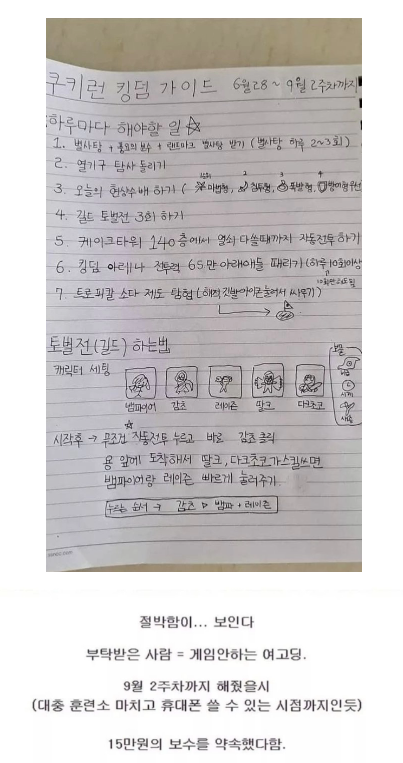 쿠키런 킹덤 가이드 6월28~9월 2주차까지
하루마다 해야할 일☆
1. 별사탕 + 풍요의 분수 + 랜드마크 별사탕 받기 (별사탕 하루 2~3회)
2. 열기구 탐사 돌리기
3. 오늘의 현상수배 하기 (마법형, 2 침투형, 3 폭발형, 4
4. 길드 토벌전 3회 하기
5. 케이크타워 140층에서 열쇠 다쓸때까지 자동전투하기
6. 킹덤 아레나 전투력 65만 아래애들 때리기 (하루10회이상
7. 트로피컬 소다 제도 탐험
토벌전(길드) 하는법
캐릭터 세팅
뱀파이어 감초 레이즌 딸크 다크초코
시작후 → 무조건 자동전투 누르고 바로 감초 클릭
용 앞에 도착해서 딸크, 다크초코가 스킬쓰면
뱀파이어랑 레이즌 빠르게 눌러주기
누르는 순서 → 감초 ▷ 뱀파 + 레이즌
절박함이... 보인다
부탁받은 사람 = 게임안하는 여고딩.
9월 2주차까지 해줬을시
(대충 훈련소 마치고 휴대폰 쓸 수 있는 시점까지인듯)
15만원의 보수를 약속했다함.